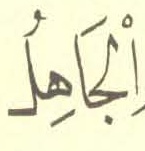 اِلْجَاهِلُ